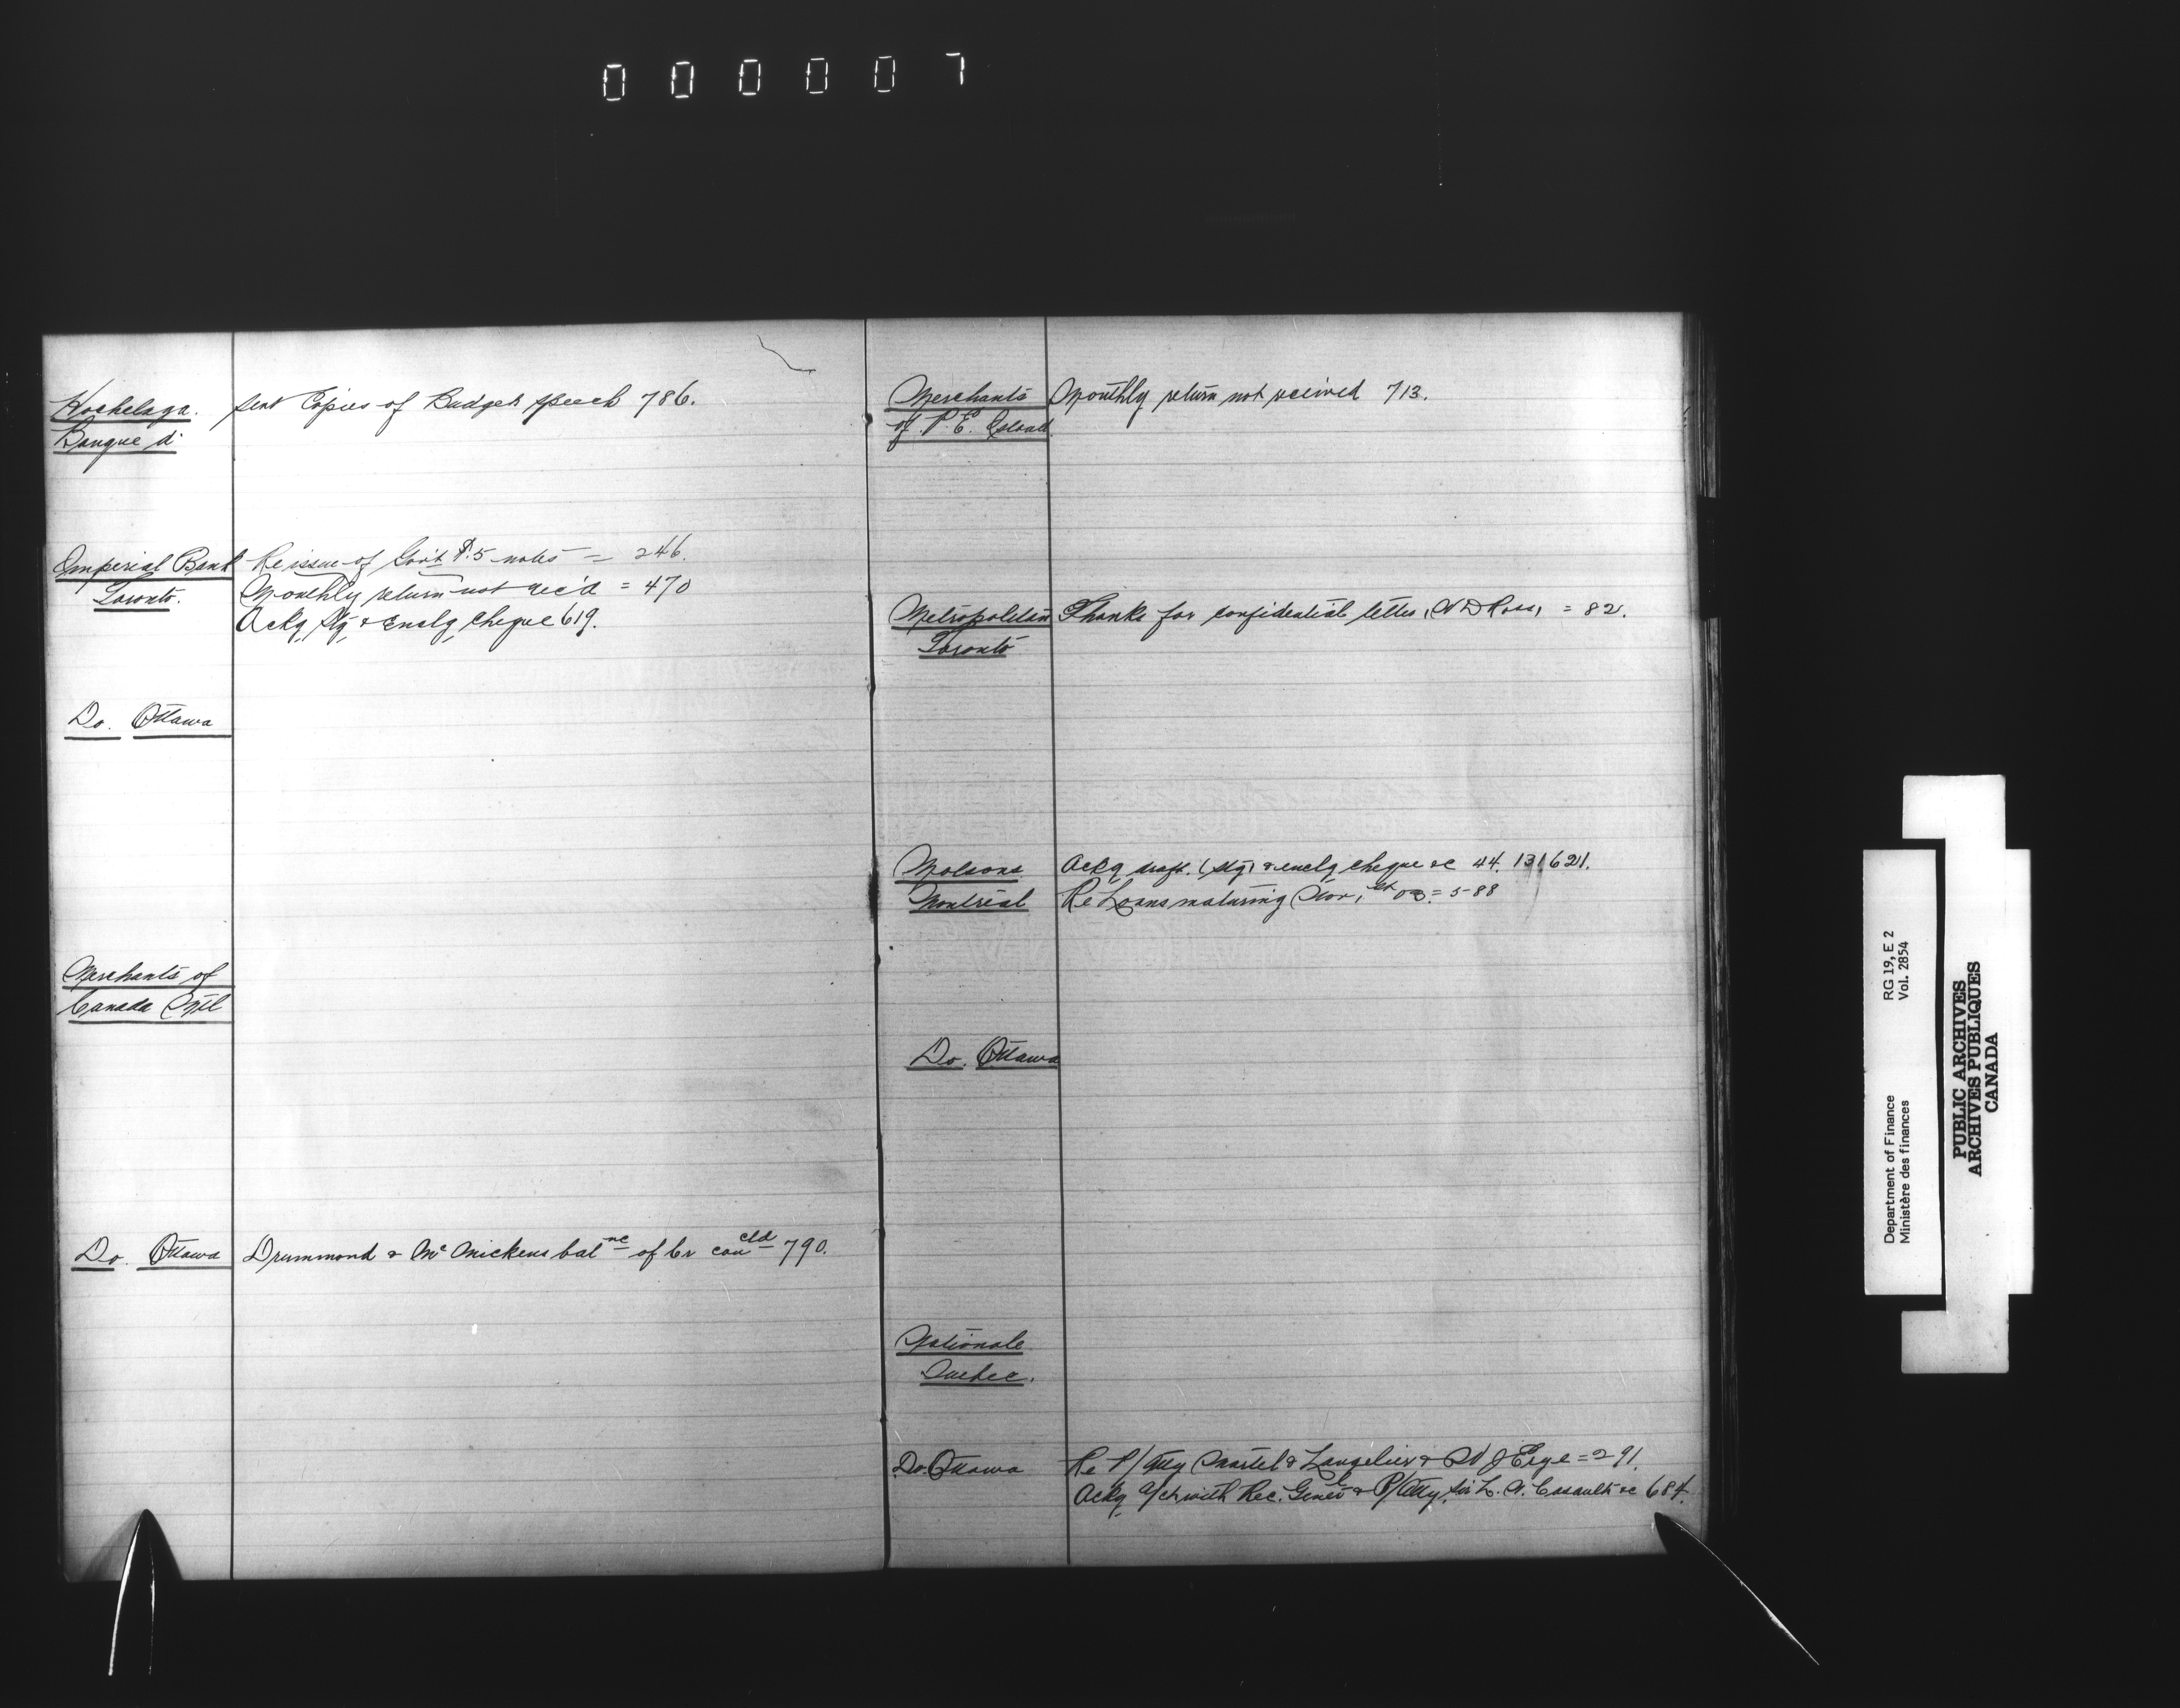 000007
Hochelaga. sent Copies of Budget speech 786.
Banque d'
Imperial Bank Re issue of Govt $5 notes = 246.
Toronto. Monthly return not rec'd = 470
Ackg stg & enclg cheque 619.
Do. Ottawa
Merchants of
Canada Mtl
Do. Ottawa Drummond & McMickens balnce of Cr cancld 790.
Merchants Monthly return not received 713.
of P. E. Island
Metropolitan Thanks for confidential letter, W D Ross, = 82.
Toronto
Molsons Ackg draft. (stg) & enclg cheque &c 44. 131 621.
Montreal Re Loans maturing Nov, 1st 03. = 588
Do. Ottawa
Nationale
Quebec.
Do. Ottawa Re P/Atty Martel & Langelier & = 291.
Ackg a/c with Rec. Genl & P/Atty, Sir L. N. Casault &c 684.
RG 19, E 2
Vol. 2854
Department of Finance
Ministère des finances
PUBLIC ARCHIVES
ARCHIVES PUBLIQUES
CANADA